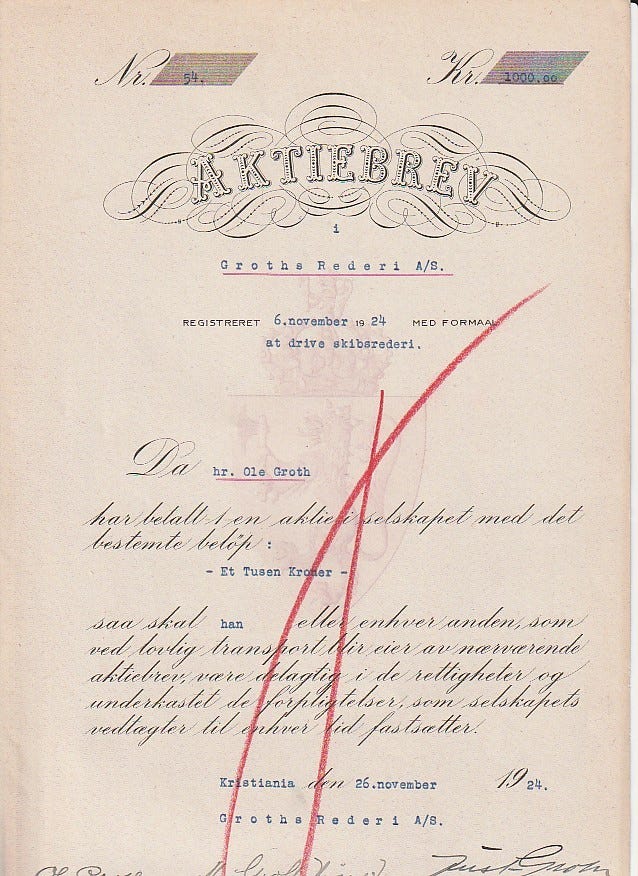 Nr. 54. Kr. 1000.00
AKTIEBREV
i
Groths Rederi A/S.
REGISTRERET 6.november 1924 MED FORMAAL
at drive skibsrederi.
Da hr. Ole Groth
har betalt 1 en aktie i selskapet med det
bestemte beløp :
- Et Tusen Kroner -
saa skal han eller enhver anden, som
ved lovlig transport blir eier av nærværende
aktiebrev, være delagtig i de rettigheter og
underkastet de forpligtelser, som selskapets
vedtægter til enhver tid fastsætter.
Kristiania den 26.november 1924.
Groths Rederi A/S.